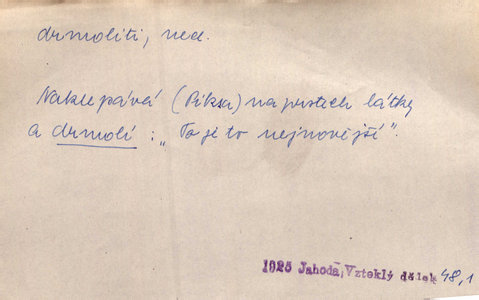 drmoliti, ned.
Naklepává (Piksa) na prstech látky
a drmolí : „To je to nejnovější".
1925 Jahoda, Vzteklý dělek 48,1